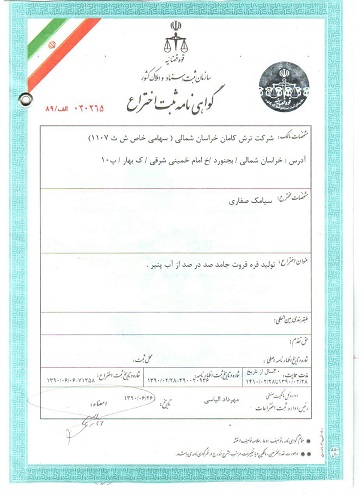 قوه قضائیه
سازمان ثبت اسناد و املاک کشور
گواهی نامه ثبت اختراع
۰۲۰۲۶۵ الف/۸۹
مشخصات مالک: شرکت ترش کامان خراسان شمالی ( سهامی خاص ش ث ۱۱۰۷)
آدرس : خراسان شمالی / بجنورد /خ امام خمینی شرقی / ک بهار / پ۱۰
مشخصات مخترع: سیامک صفاری
عنوان اختراع: تولید قره قروت جامد صد در صد از آب پنیر .
طبقه بندی بین المللی:
حق تقدم:
شماره و تاریخ اظهارنامه اصلی:
محل ثبت:
مدت حمایت: ۲۰ سال از تاریخ
۱۳۹۰/۰۲/۲۸ تا ۱۴۱۰/۰۲/۲۸
شماره و تاریخ اظهارنامه:
شماره و تاریخ ثبت اختراع:
۱۳۹۰/۰۶/۰۶-۷۱۳۵۸
مهرداد الیاسی
رئیس اداره ثبت اختراعات
تاریخ: ۱۳۹۰/۰۶/۲۶
امضاء: